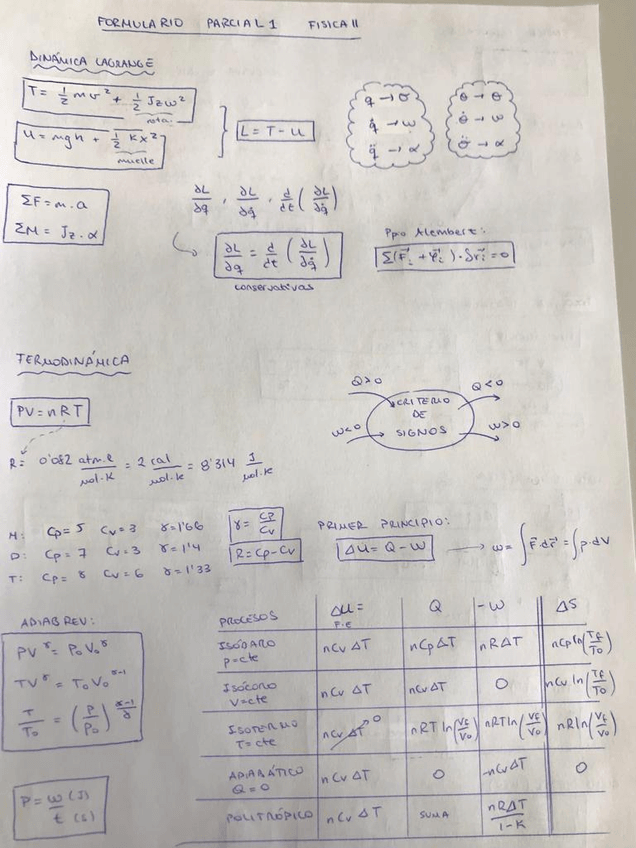 FORMULARIO PARCIAL 1 FISICA II
DINÁMICA LAGRANGE
T = 1/2 mv² + 1/2 Jzω²
rotac.
U = mgh + 1/2 Kx²
muelle
L = T - U
q → σ
q̇ → ω
q̈ → α
θ → θ
θ̇ → ω
θ̈ → α
ΣF = m·a
ΣM = Jz·α
∂L/∂q , ∂L/∂q̇ , d/dt (∂L/∂q̇)
∂L/∂q = d/dt (∂L/∂q̇)
conservativas
Ppo Alembert:
Σ(F⃗i + φ⃗i)·δr⃗i = 0
TERMODINÁMICA
PV = nRT
R = 0'082 atm·l/mol·K = 2 cal/mol·K = 8'314 J/mol·K
Q>0
Q<0
CRITERIO
DE
SIGNOS
W<0
W>0
M: Cp = 5 Cv = 3 γ = 1'66
D: Cp = 7 Cv = 3 γ = 1'4
T: Cp = 8 Cv = 6 γ = 1'33
γ = Cp/Cv
R = Cp - Cv
PRIMER PRINCIPIO:
ΔU = Q - W → W = ∫F⃗·dr⃗ = ∫p·dV
ADIAB REV:
PV^γ = P₀V₀^γ
TV^γ = T₀V₀^γ-1
T/T₀ = (P/P₀)^γ-1/γ
P = W (J)/t (s)
PROCESOS ΔU = F.E Q -W ΔS
ISÓBARO p=cte nCvΔT nCpΔT nRΔT nCp ln(Tf/T₀)
ISÓCORO V=cte nCvΔT nCvΔT 0 nCv ln(Tf/T₀)
ISOTERMO T=cte nCvΔT 0 nRT ln(Vf/V₀) nRT ln(Vf/V₀) nR ln(Vf/V₀)
ADIABÁTICO Q=0 nCvΔT 0 -nCvΔT 0
POLITRÓPICO nCvΔT SUMA nRΔT/1-K